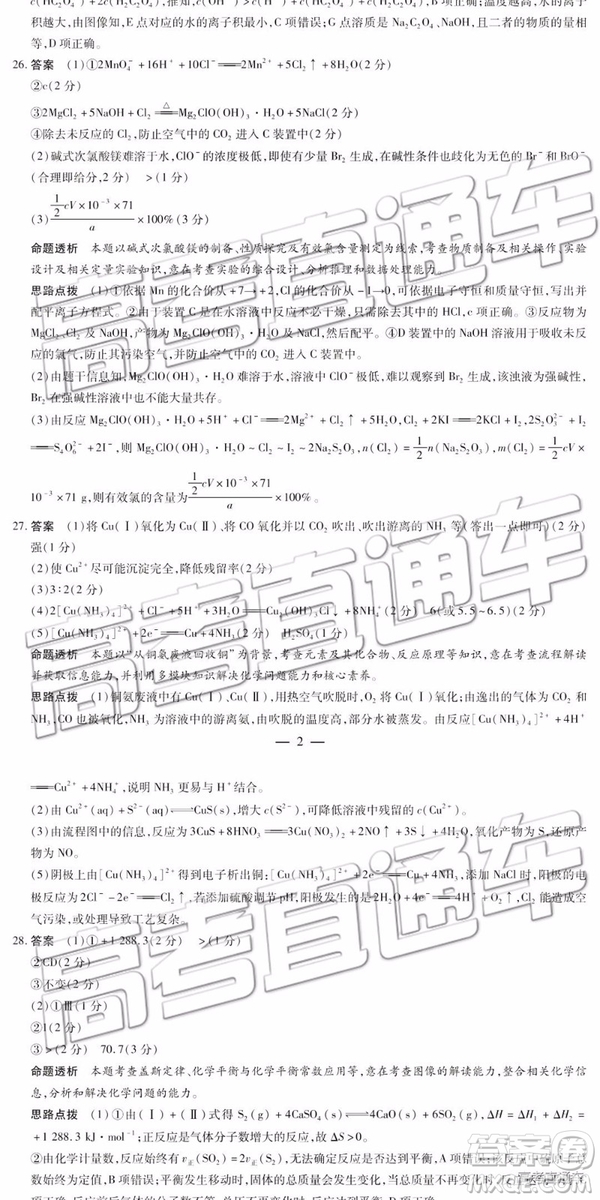 c(HC₂O₄⁻)+2c(H₂C₂O₄),推知,c(OH⁻)>c(H⁺)+c(HC₂O₄⁻)+c(H₂C₂O₄),B项正确;温度越高,水的离子
积越大,由图像知,E点对应的水的离子积最小,C项错误;G点溶质是Na₂C₂O₄、NaCl,且二者的物质的量相
等,D项正确。
26.答案 (1)①2MnO₄⁻+16H⁺+10Cl⁻══2Mn²⁺+5Cl₂↑+8H₂O(2分)
②c(2分)
③2MgCl₂+5NaOH+Cl₂══Mg₂ClO(OH)₃·H₂O+5NaCl(2分)
④除去未反应的Cl₂,防止空气中的CO₂进入C装置中(2分)
(2)碱式次氯酸镁难溶于水,ClO⁻的浓度极低,即使有少量Br₂生成,在碱性条件也歧化为无色的Br⁻和BrO⁻
(合理即给分,2分) >(1分)
(3) (1/2 cV×10⁻³×71)/a ×100%(3分)
命题透析 本题以碱式次氯酸镁的制备、性质探究及有效氯含量测定为线索,考查物质制备及相关操作、实验
设计及相关定量实验知识,意在考查实验的综合设计、分析推理和数据处理能力。
思路点拨 (1)①依据Mn的化合价从+7→+2,Cl的化合价从-1→0,可依据电子守恒和质量守恒,写出并
配平离子方程式。②由于装置C是在水溶液中反应不必干燥,只需除去其中的HCl,c项正确。③反应物为
MgCl₂、Cl₂及NaOH,产物为Mg₂ClO(OH)₃·H₂O及NaCl,然后配平。④D装置中的NaOH溶液用于吸收未反
应的氯气,防止其污染空气,并防止空气中的CO₂进入C装置中。
(2)由题干信息知,Mg₂ClO(OH)₃·H₂O难溶于水,溶液中ClO⁻极低,难以观察到Br₂生成,该浊液为强碱性,
Br₂在强碱性环境中也不能大量共存。
(3)由反应Mg₂ClO(OH)₃·H₂O+5H⁺+Cl⁻══2Mg²⁺+Cl₂↑+5H₂O,Cl₂+2KI══2KCl+I₂,2S₂O₃²⁻+I₂
══S₄O₆²⁻+2I⁻,则Mg₂ClO(OH)₃·H₂O~Cl₂~I₂~2Na₂S₂O₃,n(Cl₂)=1/2 n(Na₂S₂O₃),m(Cl₂)=1/2 cV×
10⁻³×71 g,则有效氯的含量为 (1/2 cV×10⁻³×71)/a ×100%。
27.答案 (1)将Cu(Ⅰ)氧化为Cu(Ⅱ)、将CO氧化并以CO₂吹出、吹出游离的NH₃等(答出一点即可)(2分)
强(1分)
(2)使Cu²⁺尽可能沉淀完全,降低残留率(2分)
(3)3:2(2分)
(4)2[Cu(NH₃)₄]²⁺+Cl⁻+5H⁺+3H₂O══Cu₂(OH)₃Cl↓+8NH₄⁺(2分) 6(或5.5~6.5)(2分)
(5)[Cu(NH₃)₄]²⁺+2e⁻══Cu+4NH₃(2分) H₂SO₄(1分)
命题透析 本题以“从铜氨废液回收铜”为背景,考查元素及其化合物、反应原理等知识,意在考查流程解读
并获取信息能力,并利用多模块知识解决化学问题的能力和核心素养。
思路点拨 (1)铜氨废液中有Cu(Ⅰ)、Cu(Ⅱ),用热空气吹脱时,O₂将Cu(Ⅰ)氧化;由逸出的气体为CO₂和
NH₃,CO也被氧化,NH₃为溶液中的游离氨,由吹脱的温度高,部分水被蒸发。由反应[Cu(NH₃)₄]²⁺+4H⁺
— 2 —
══Cu²⁺+4NH₄⁺,说明NH₃更易与H⁺结合。
(2)由Cu²⁺(aq)+S²⁻(aq)⇌CuS(s),增大c(S²⁻),可降低溶液中残留的c(Cu²⁺)。
(3)由流程图中的信息,反应为3CuS+8HNO₃══3Cu(NO₃)₂+2NO↑+3S↓+4H₂O,氧化产物为S,还原产
物为NO。
(5)阴极上由[Cu(NH₃)₄]²⁺得到电子析出铜:[Cu(NH₃)₄]²⁺+2e⁻══Cu+4NH₃,添加NaCl时,阳极的电
极反应为2Cl⁻-2e⁻══Cl₂↑,若添加硫酸调节pH,阳极发生的是2H₂O+4e⁻══4H⁺+O₂↑,Cl₂能造成空
气污染,或处理导致工艺复杂。
28.答案 (1)①+1 288.3(2分) >(1分)
②CD(2分)
③不变(2分)
(2)①Ⅲ(2分)
②1(2分)
③>(1分) 70.7(3分)
命题透析 本题考查盖斯定律、化学平衡与化学平衡常数应用等,意在考查图像的解读能力,整合相关化学信
息,分析和解决化学问题的能力。
思路点拨 (1)①由(Ⅰ)+(Ⅱ)式得S₂(g)+4CaSO₄(s)⇌4CaO(s)+6SO₂(g),ΔH=ΔH₁+ΔH₂=
+1 288.3 kJ·mol⁻¹;正反应是气体分子数增大的反应,故ΔS>0。
②由化学计量数,反应始终有v正(SO₂)=2v正(S₂),无法确定反应是否达到平衡,A项错误;该反应